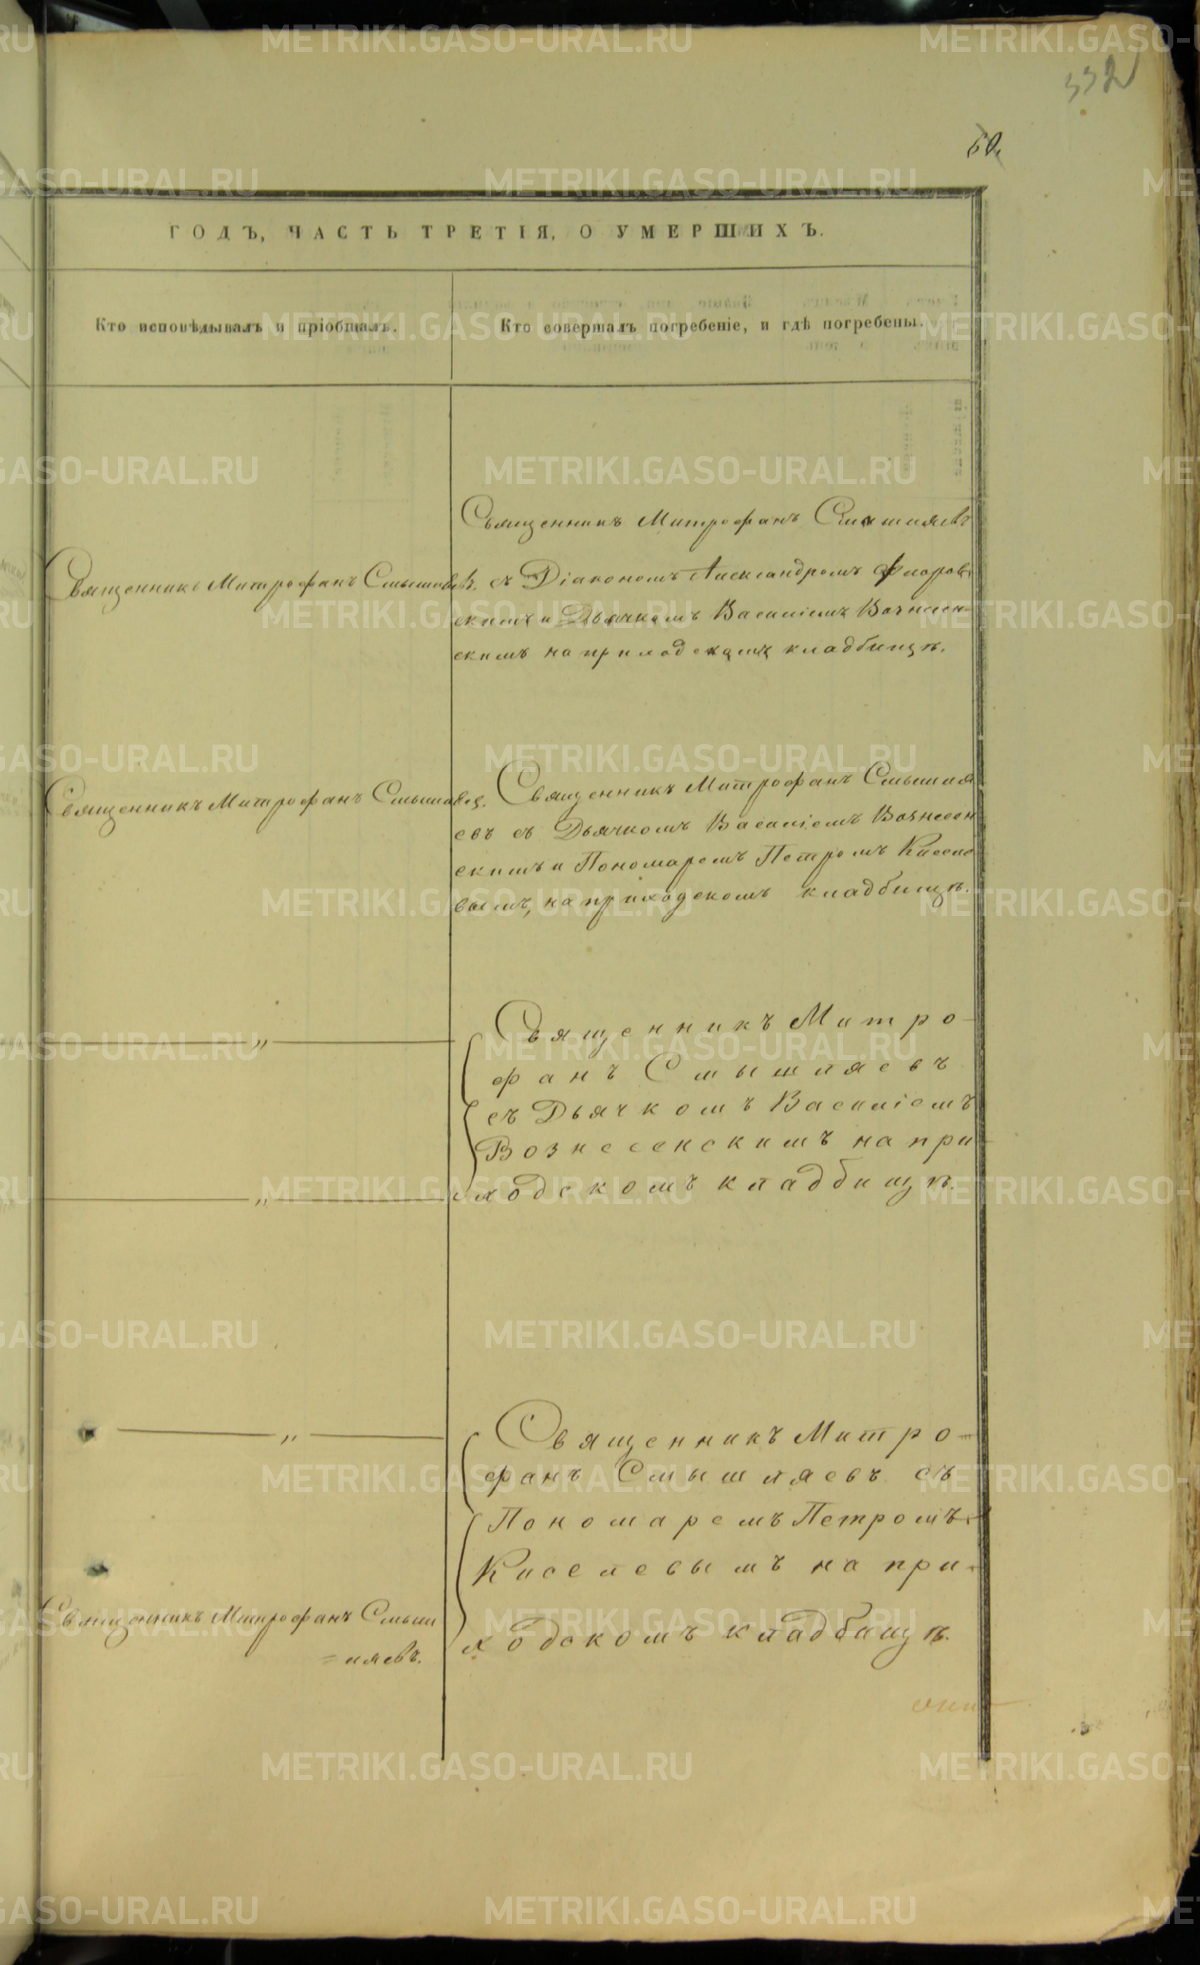 332
60.
ГОДЪ, ЧАСТЬ ТРЕТІЯ, О УМЕРШИХЪ.
Кто исповѣдывалъ и пріобщалъ.
Кто совершалъ погребеніе, и гдѣ погребены.
Священникъ Митрофанъ Смышляевъ
Священникъ Митрофанъ Смышляевъ
съ Діакономъ Александромъ Флоров-
скимъ и Дьячкомъ Василіемъ Вознесен-
скимъ на приходскомъ кладбищѣ.
Священникъ Митрофанъ Смышляевъ.
Священникъ Митрофанъ Смышля
евъ съ Дьячкомъ Василіемъ Вознесен
скимъ и Пономаремъ Петромъ Киселе
вымъ, на приходскомъ кладбищѣ.
„
Священникъ Митро-
фанъ Смышляевъ
съ Дьячкомъ Василіемъ
Вознесенскимъ на при
ходскомъ кладбищѣ.
„
„
Священникъ Митро-
фанъ Смышляевъ съ
Пономаремъ Петромъ
Киселевымъ на при-
ходскомъ кладбищѣ.
Священникъ Митрофанъ Смыш
=ляевъ.
METRIKI.GASO-URAL.RU